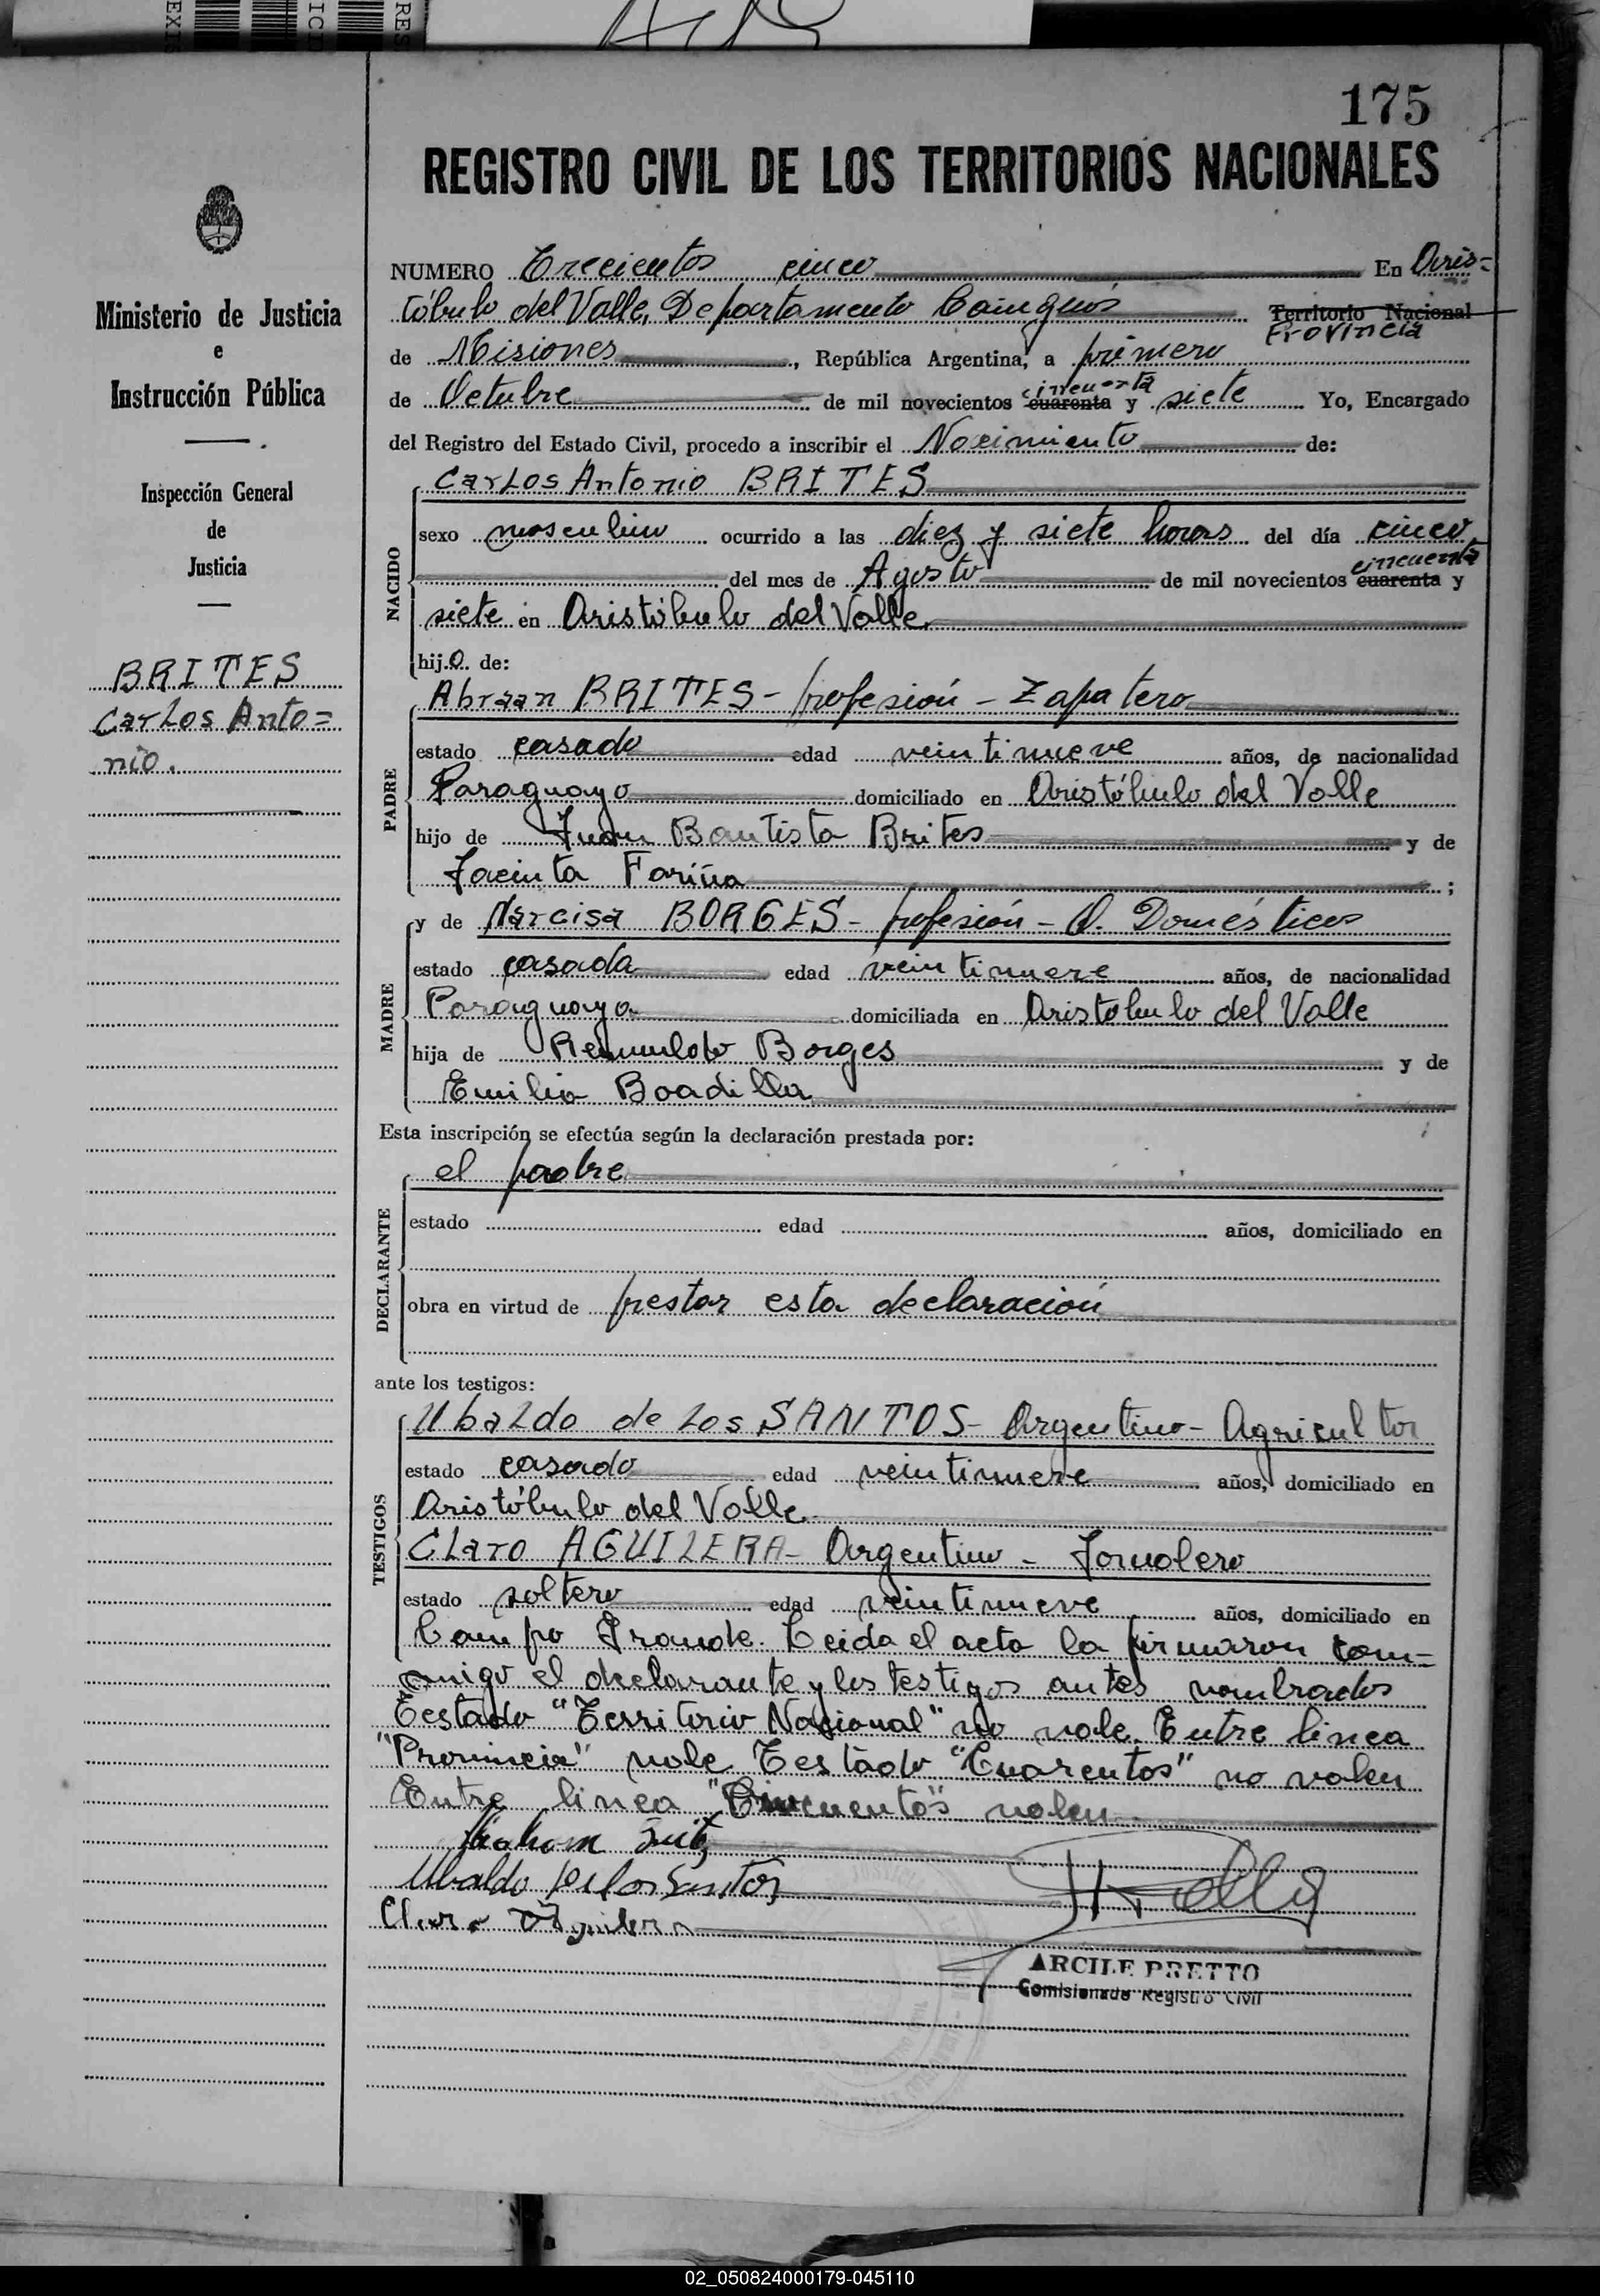 175
REGISTRO CIVIL DE LOS TERRITORIOS NACIONALES
Ministerio de Justicia
e
Instrucción Pública
Inspección General
de
Justicia
BRITES
Carlos Anto=
nio.
NUMERO Trecientos cinco En Aris-
tóbulo del Valle, Departamento Cainguás Territorio Nacional
Provincia
de Misiones, República Argentina, a primero
de Octubre de mil novecientos cuarenta y siete Yo, Encargado
cincuenta
del Registro del Estado Civil, procedo a inscribir el Nacimiento de:
NACIDO
Carlos Antonio BRITES
sexo masculino ocurrido a las diez y siete horas del día cinco
cincuenta
del mes de Agosto de mil novecientos cuarenta y
siete en Aristóbulo del Valle
hijo de:
PADRE
Abraan BRITES - profesión - Zapatero
estado casado edad veintinueve años, de nacionalidad
Paraguayo domiciliado en Aristóbulo del Valle
hijo de Juan Bautista Brites y de
Jacinta Fariña ;
MADRE
y de Narcisa BORGES - profesión - Q. Domésticos
estado casada edad veintinueve años, de nacionalidad
Paraguaya domiciliada en Aristobulo del Valle
hija de Borges y de
Emilia Boadilla
Esta inscripción se efectúa según la declaración prestada por:
DECLARANTE
el padre
estado edad años, domiciliado en
obra en virtud de prestar esta declaración
ante los testigos:
TESTIGOS
Ubaldo de los SANTOS - Argentino - Agricultor
estado casado edad veintinueve años, domiciliado en
Aristóbulo del Valle
Claro AGUILERA - Argentino - Jornalero
estado soltero edad veintinueve años, domiciliado en
Campo Grande. Leida el acta la firmaron con=
migo el declarante y los testigos antes nombrados
Testado "Territorio Nacional" no vale. Entre linea
"Provincia" vale Testado "Cuarentas" no valen
Entre linea "Cincuentas" valen
Ubaldo de los Santos
Claro Aguilera
ARCILE PRETTO
Comisionado Registro Civil
02_050824000179-045110